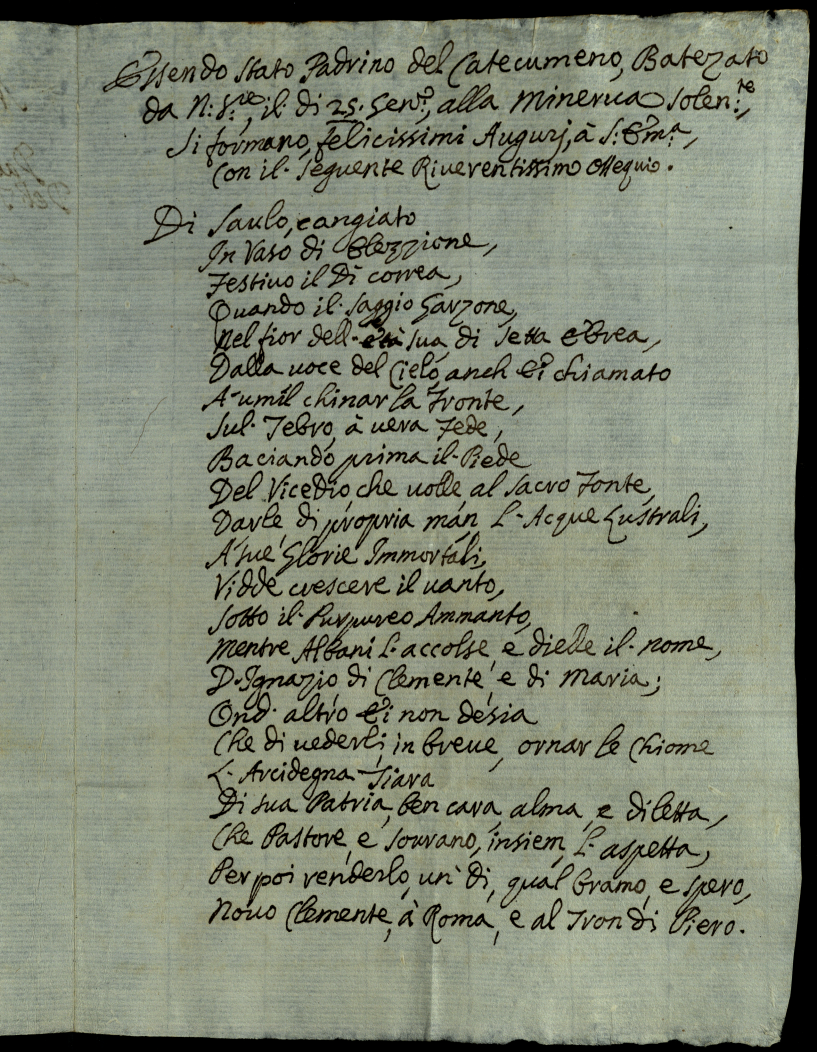 Essendo stato Padrino del Catecumeno, Batezato
da N: S:re, il di 25. Gen:o, alla Minerva Solen:te,
si formano, felicissimi Augurj, à S: Em:a,
Con il seguente Riverentissimo Ossequio.
Di Saulo, cangiato
In Vaso di Elezzione,
Festivo il Dì correa,
Quando il saggio Garzone,
Nel fior dell' età sua, di setta Ebrea,
Dalla voce del Cielo, anch' Ei chiamato
A umil chinar la Fronte,
Sul Tebro, à vera Fede,
Baciando prima il Piede
Del Vicedio che volle, al Sacro Fonte,
Darle, di propria mán L' Acque Lustrali,
A sue Glorie Immortali,
Vidde crescere il vanto,
Sotto il Purpureo Ammanto,
Mentre Albani L' accolse, e dielle il nome,
D' Ignazio di Clemente, e di Maria;
Ond' altro Ei non desia
Che di vederli, in breve, ornar le Chiome
L' Arcidegna Tiara
Di sua Patria, ben cara, alma, e diletta,
Che Pastore, e Sovrano, insiem, L' aspetta,
Per poi renderlo, un dì, qual bramo, e spero,
Novo Clemente, à Roma, e al Tron di Piero.